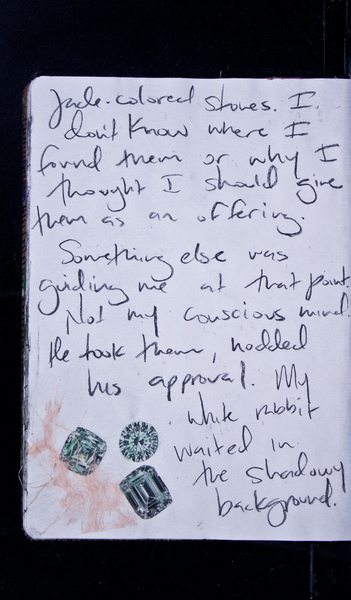 Jade-colored stones. I
don't know where I
found them or why I
thought I should give
them as an offering.
Something else was
guiding me at that point.
Not my conscious mind.
He took them, nodded
his approval. My
white rabbit
waited in
the shadowy
background.